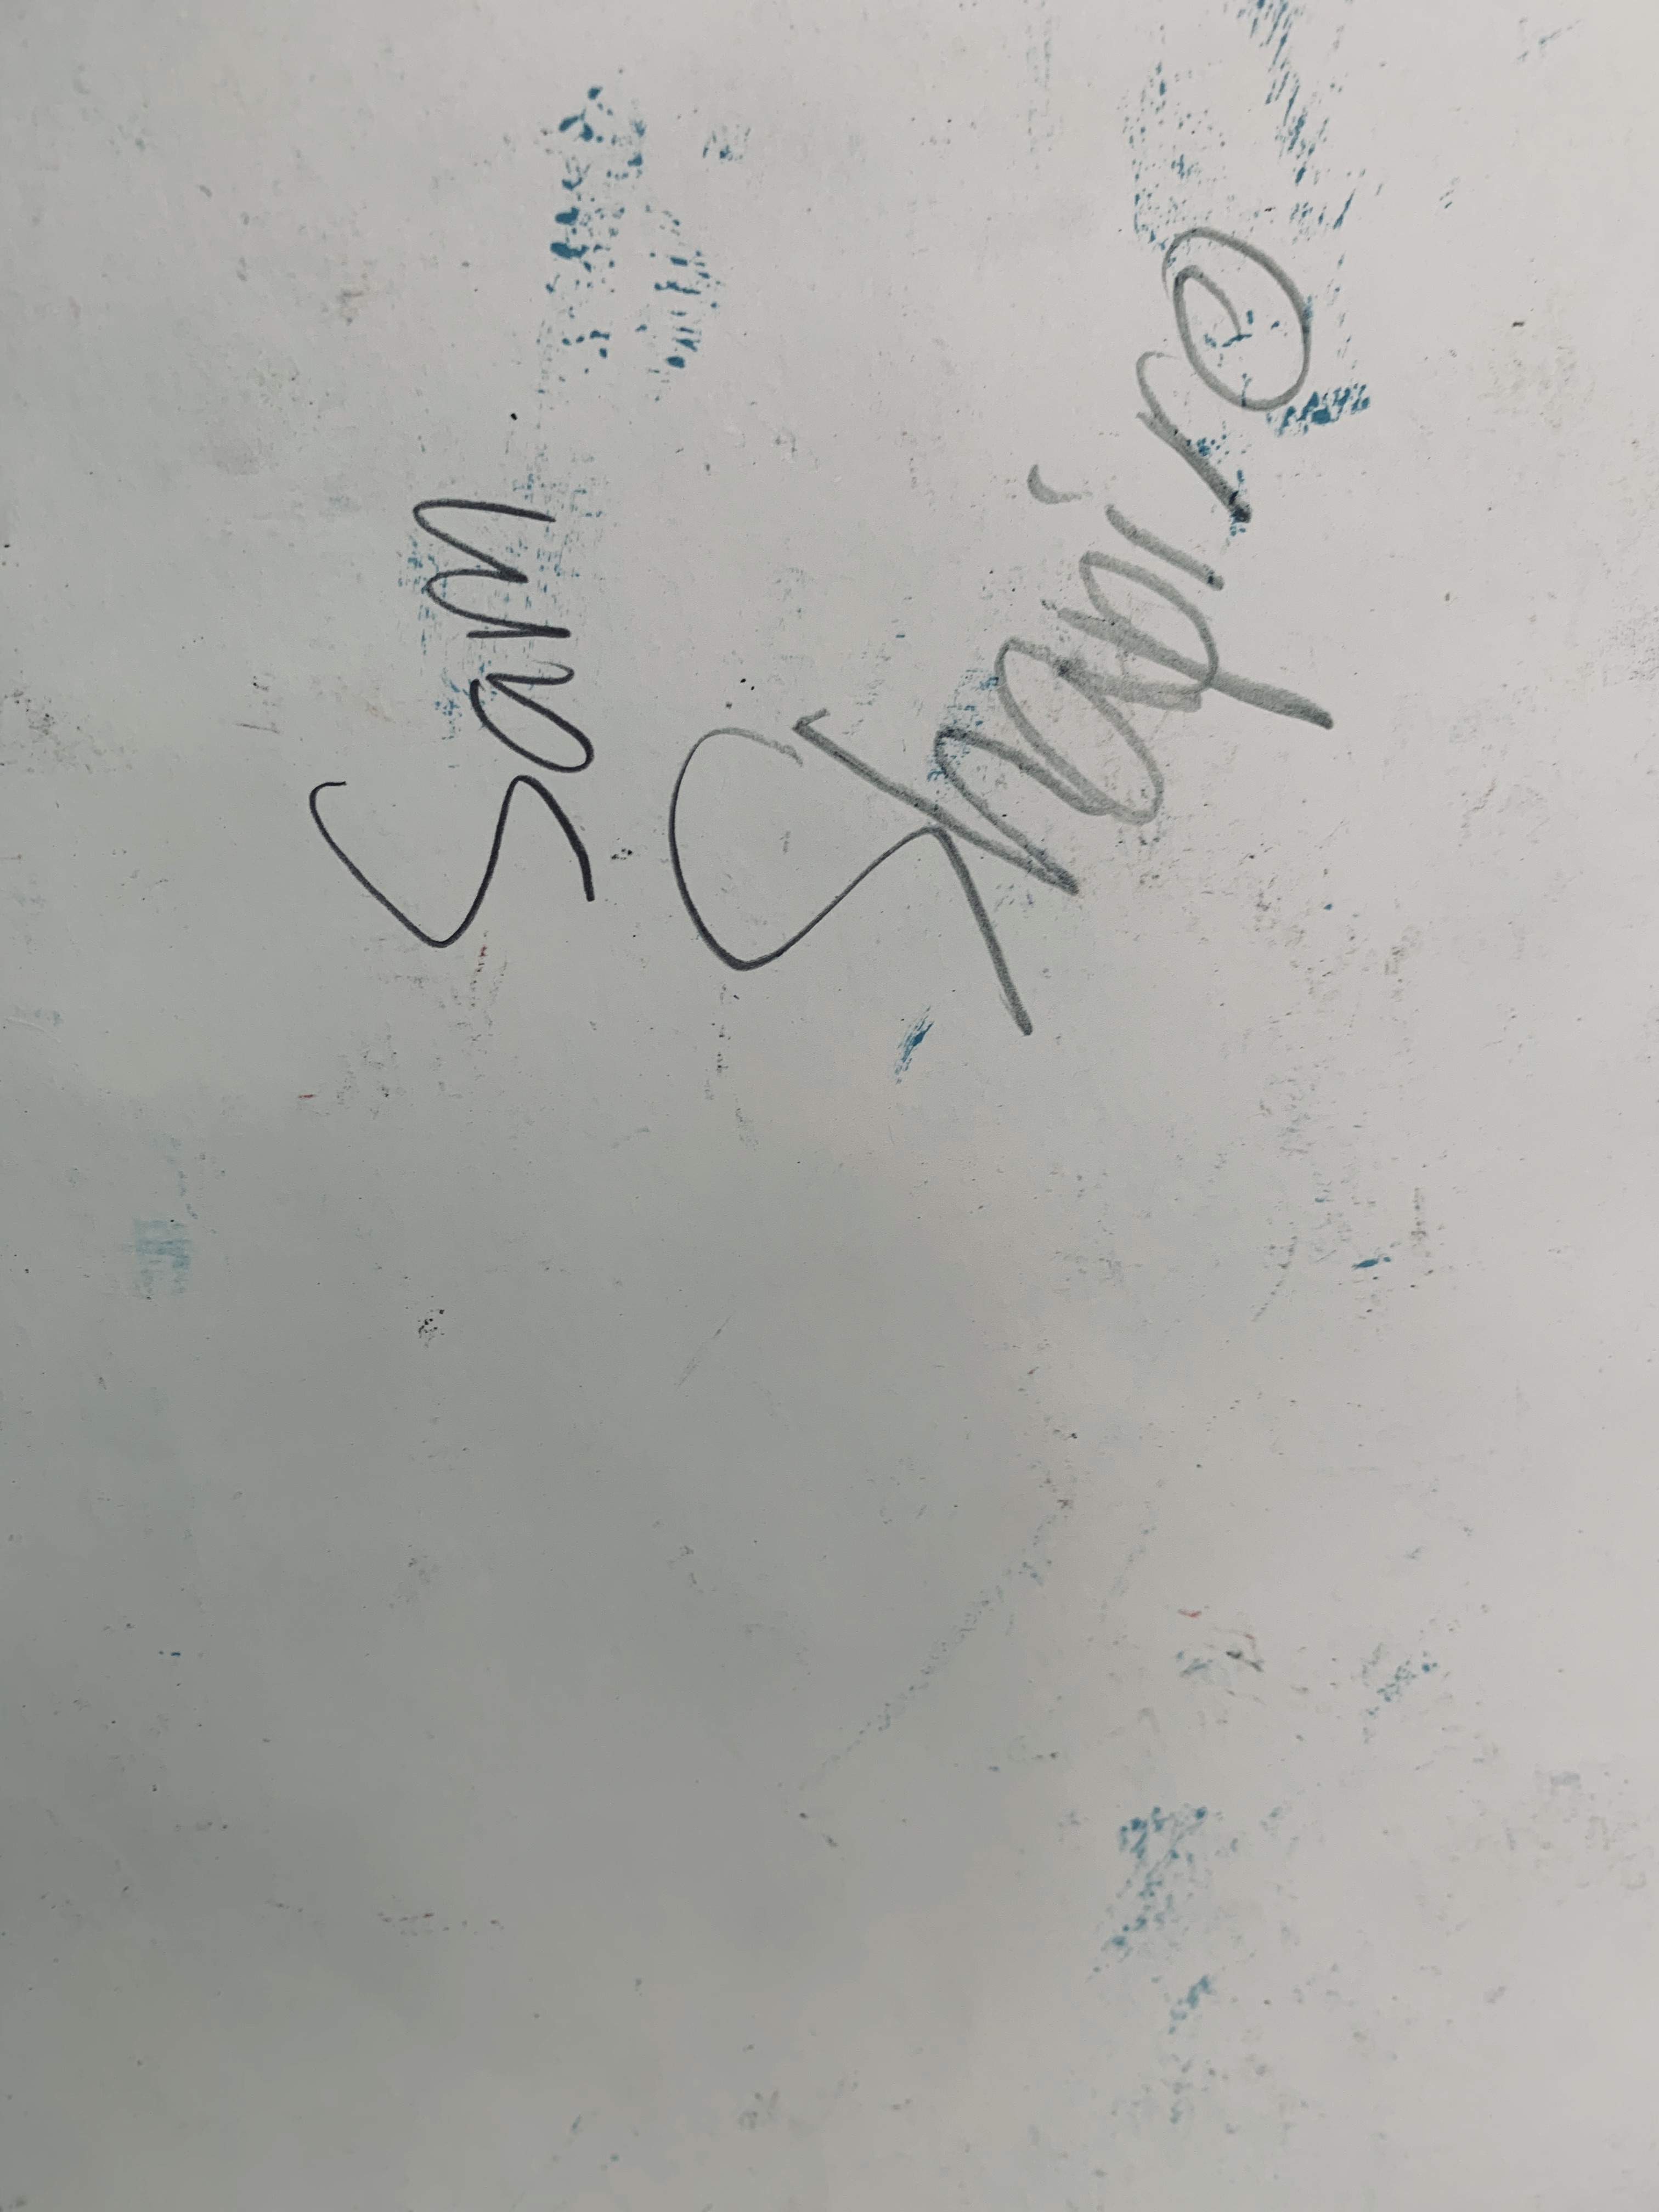 Sam
Shapiro